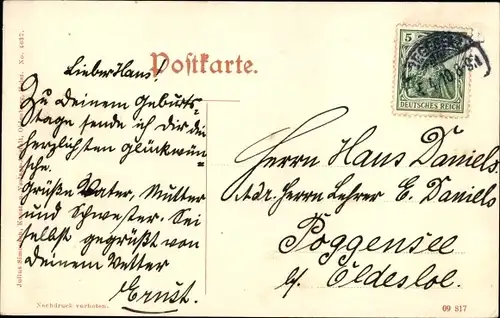 Postkarte.
Lieber Hans!
Zu Deinem Geburts-
tage sende ich Dir die
herzlichsten Glückwün-
sche.
Grüße Vater, Mutter
und Schwester. Sei
selbst gegrüßt von
Deinem Vetter
Ernst.
5
DEUTSCHES REICH
Herrn Hans Daniels.
Adr. Herrn Lehrer E. Daniels
Poggensee
b/ Oldesloe.
Nachdruck verboten.
09 817
Julius Simonsen, No. 4837.